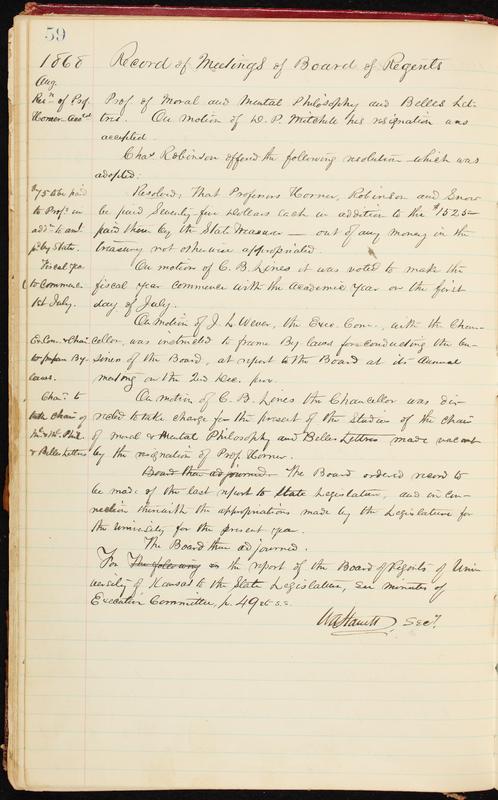 59
1868 Record of Meetings of Board of Regents
Aug.
Resn of Prof. Prof. of Moral and Mental Philosophy and Belles Let-
Horner accd tres. On motion of D. P. Mitchell his resignation was
accepted.
Chas Robinson offered the following resolution which was
adopted:
$75 to be paid Resolved, That Professors Horner, Robinson and Snow
to Profs. in be paid Seventy-five Dollars each in addition to the $1525–
addn to amt paid them by the State Treasurer — out of any money in the
pd by State. treasury not otherwise appropriated.
Fiscal yea On motion of C. B. Lines it was voted to make the
to commence fiscal year commence with the Academic year or the first
1st July. day of July.
On motion of J. L. Wever, the Exec. Com., with the Chan-
Ex. Com. & Chan cellor, was instructed to frame By laws for conducting the bu-
to prepare By siness of the Board, at report to the Board at its Annual
laws. meeting on the 2nd Dec. prox.
Chanr. to On motion of C. B. Lines the Chancellor was dir-
take Chair of rected to take charge for the present of the Studies of the Chair
M. & M. Phil. of moral & Mental Philosophy and Belles Lettres made vacant
& Belles Lettres by the resignation of Prof. Horner.
Board then adjourned. The Board ordered record to
be made of the last report to State Legislature, and in con-
nection therewith the appropriations made by the Legislature for
the University for the present year.
The Board then adjourned.
For The following is the report of the Board of Regents of Univ
ersity of Kansas to the State Legislature, see minutes of
Executive Committee, p. 49 et s.s.
Secy.